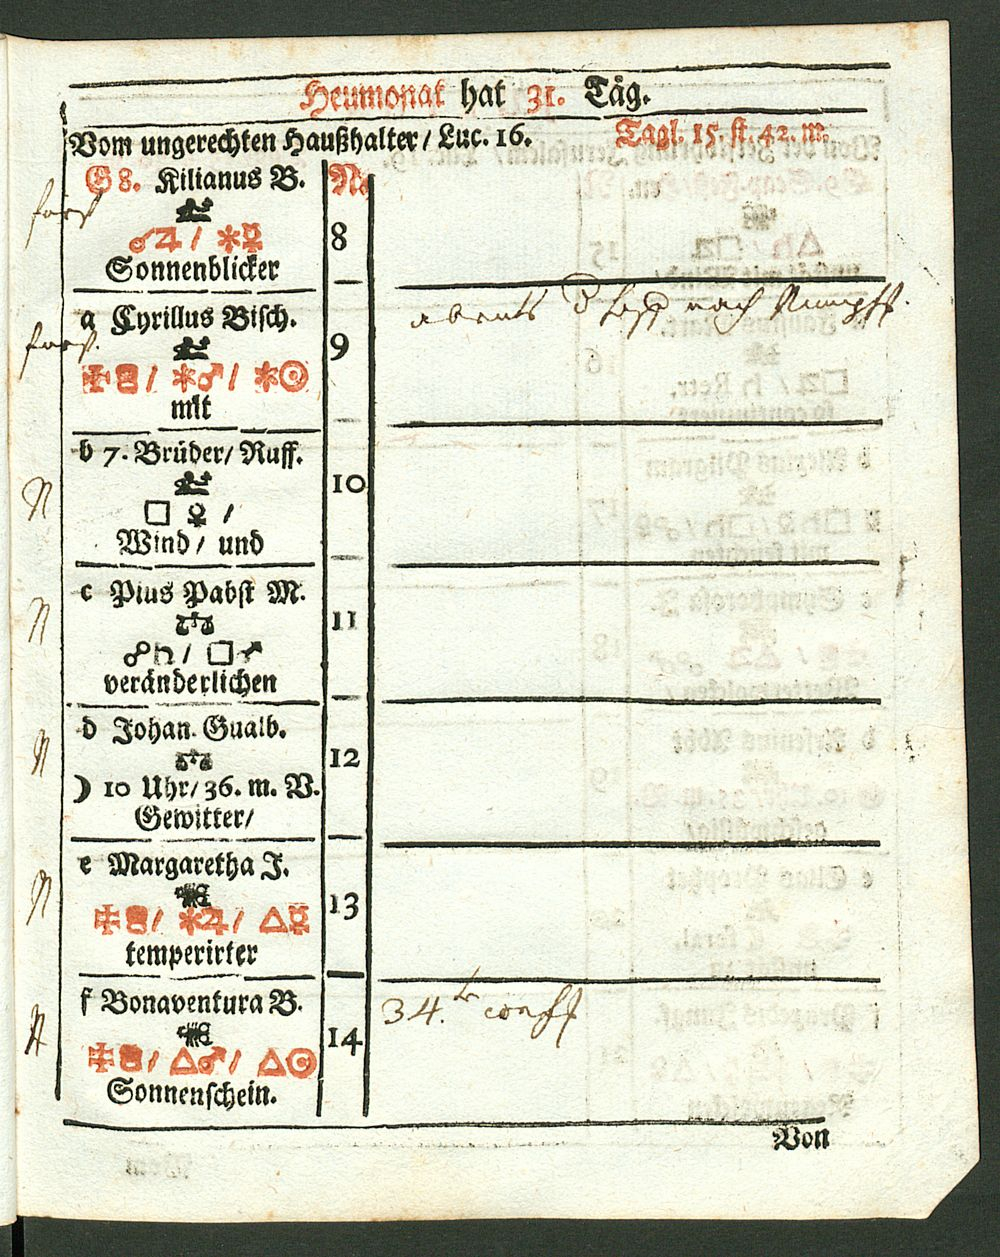 Heumonat hat 31. Täg.
Vom ungerechten Haußhalter / Luc. 16.
Tagl. 15. st. 42. m.
G 8. Kilianus B.
♂♃ / ✱☿
Sonnenblicker
8
a Cyrillus Bisch.
/ ✱♂ / ✱☉
mit
9
abents nach
b 7. Brüder / Ruff.
□ ♀ /
Wind / und
10
c Pius Pabst M.
☍♄ / □♂
veränderlichen
11
d Johan. Gualb.
☽ 10 Uhr / 36. m. V.
Gewitter /
12
e Margaretha J.
/ ✱♃ / △☿
temperirter
13
f Bonaventura B.
/ △♂ / △☉
Sonnenschein.
14
34.
Von